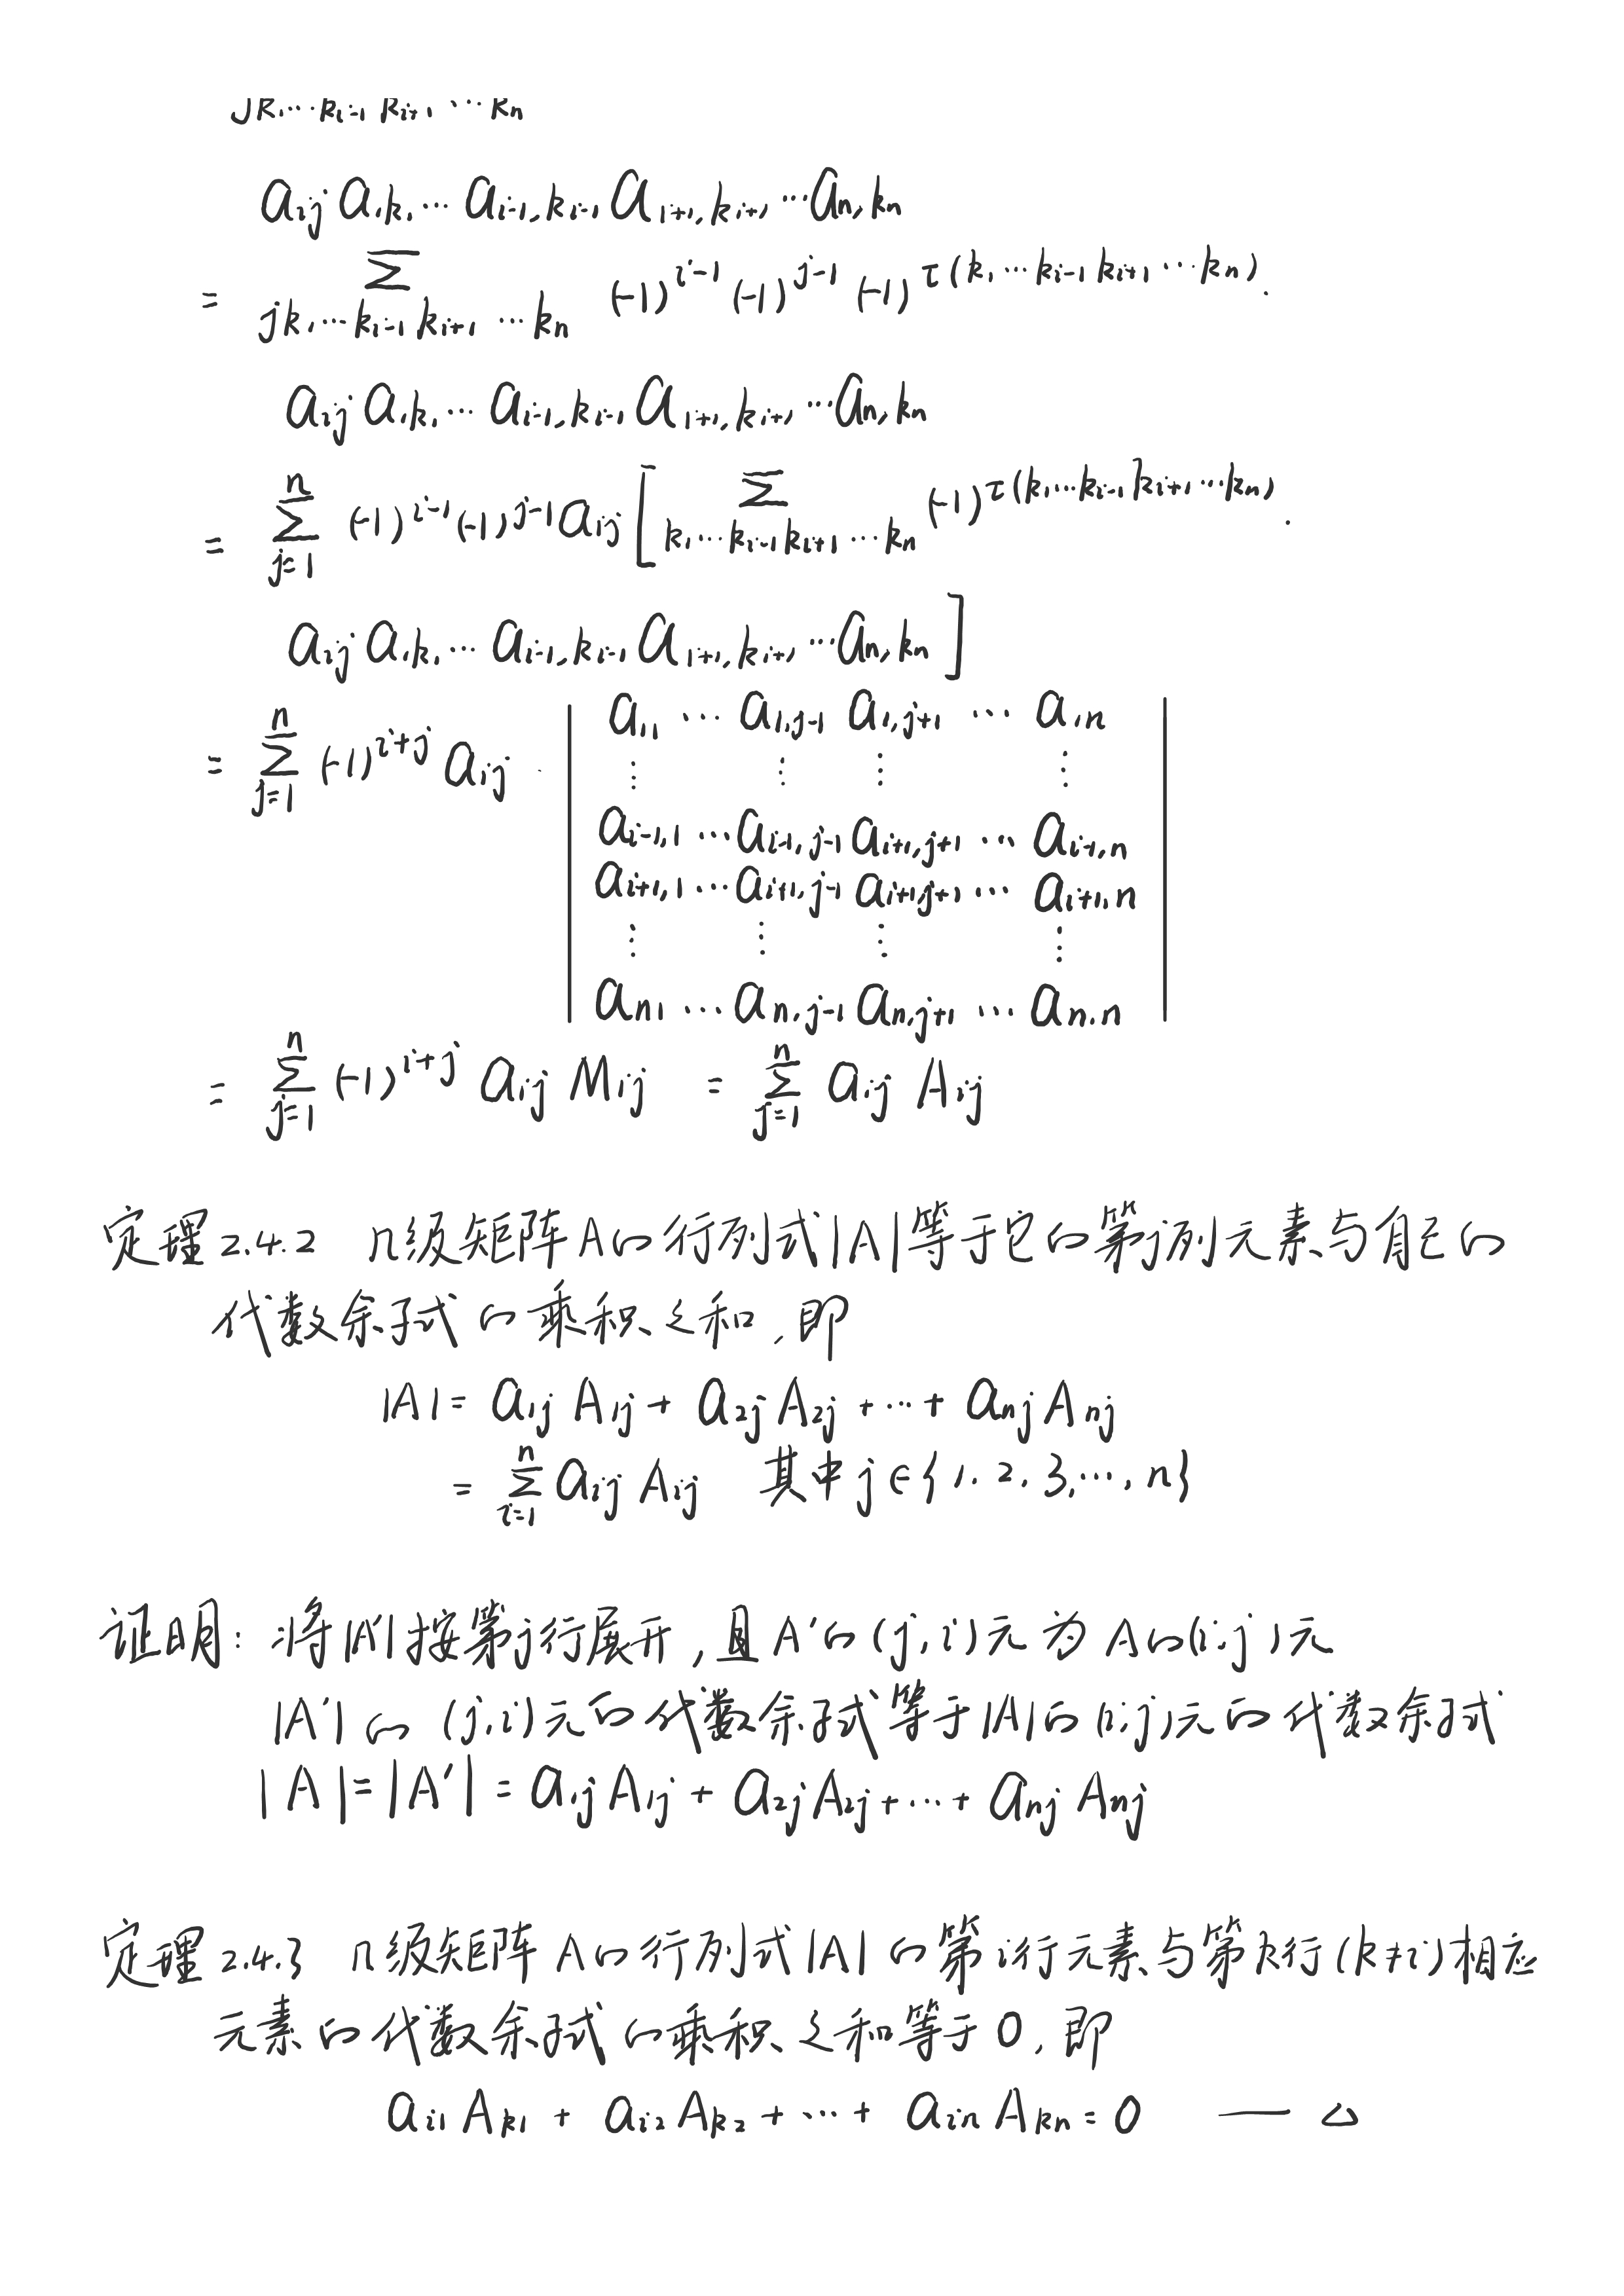 jk₁…kᵢ₋₁ kᵢ₊₁ …kₙ
aᵢⱼ a₁k₁… aᵢ₋₁,kᵢ₋₁ a₁₊₁,kᵢ₊₁ …aₙ,kₙ
= Σ_{jk₁…kᵢ₋₁kᵢ₊₁ …kₙ} (-1)^{i-1} (-1)^{j-1} (-1)^{τ(k₁…kᵢ₋₁ kᵢ₊₁ …kₙ)} ·
aᵢⱼ a₁k₁… aᵢ₋₁,kᵢ₋₁ a₁₊₁,kᵢ₊₁ …aₙ,kₙ
= Σ_{j=1}^{n} (-1)^{i-1}(-1)^{j-1} aᵢⱼ [ Σ_{k₁…kᵢ₋₁kᵢ₊₁ …kₙ} (-1)^{τ(k₁…kᵢ₋₁kᵢ₊₁…kₙ)} ·
aᵢⱼ a₁k₁… aᵢ₋₁,kᵢ₋₁ a₁₊₁,kᵢ₊₁ …aₙ,kₙ ]
= Σ_{j=1}^{n} (-1)^{i+j} aᵢⱼ · | a₁₁ … a_{1,j-1} a_{1,j+1} … a_{1n}
⋮ ⋮ ⋮ ⋮
a_{i-1,1} … a_{i-1,j-1} a_{i+1,j+1} … a_{i+1,n}
a_{i+1,1} … a_{i+1,j-1} a_{i+1,j+1} … a_{i+1,n}
⋮ ⋮ ⋮ ⋮
a_{n1} … a_{n,j-1} a_{n,j+1} … a_{n.n} |
= Σ_{j=1}^{n} (-1)^{i+j} aᵢⱼ Mᵢⱼ = Σ_{j=1}^{n} aᵢⱼ Aᵢⱼ
定理2.4.2 n级矩阵A的行列式|A|等于它的第j列元素与自己的
代数余子式的乘积之和,即
|A| = a₁ⱼ A₁ⱼ + a₂ⱼ A₂ⱼ + … + aₙⱼ Aₙⱼ
= Σ_{i=1}^{n} aᵢⱼ Aᵢⱼ 其中 j∈{1.2.3,…,n}
证明: 将|A'|按第j行展开,且A'的(j,i)元为A的(i.j)元
|A'|的(j,i)元的代数余子式等于|A|的(i,j)元的代数余子式
|A|=|A'| = a₁ⱼA₁ⱼ + a₂ⱼA₂ⱼ+…+ aₙⱼ Aₙⱼ
定理2.4.3 n级矩阵A的行列式|A|的第i行元素与第k行(k≠i)相应
元素的代数余子式的乘积之和等于0,即
aᵢ₁Aₖ₁ + aᵢ₂Aₖ₂ + … + aᵢₙAₖₙ = 0 — △